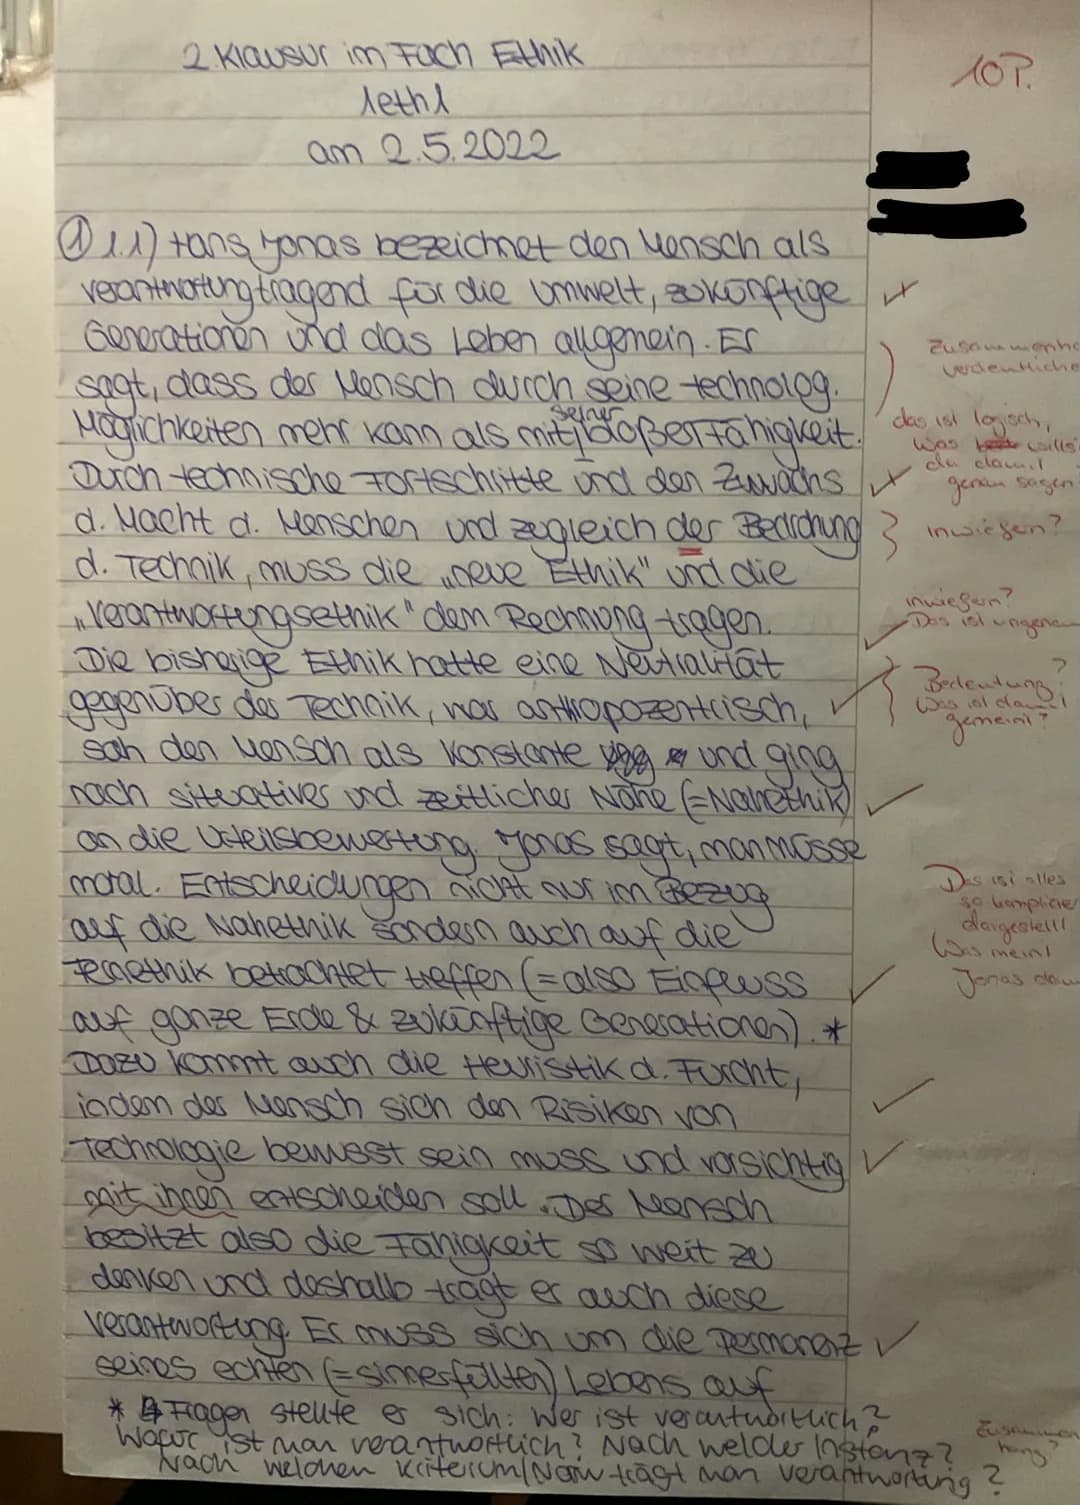 2. Klausur im Fach Ethik
10P.
1eth1
am 2.5.2022
① 1.1) Hans Jonas bezeichnet den Mensch als
verantwortungtragend für die Umwelt, zukünftige
Generationen und das Leben allgemein. Er
Zusammenh
verdeutliche
sagt, dass der Mensch durch seine technolog.
Möglichkeiten mehr kann als mit seiner bloßer Fähigkeit.
das ist logisch,
was willst
du damit
genau sagen
Durch technische Fortschritte und den Zuwachs
d. Macht d. Menschen und zugleich der Bedrohung
inwiefern?
d. Technik, muss die „neue Ethik" und die
„Verantwortungsethik" dem Rechnung tragen.
inwiefern?
Das ist ungenau
Die bisherige Ethik hatte eine Neutralität
gegenüber der Technik, war anthropozentrisch,
Bedeutung?
Was ist damit
gemeint?
sah den Mensch als Konstante und ging
nach situativer und zeitlicher Nähe (=Nahethik)
an die Urteilsbewertung. Jonas sagt, man müsse
moral. Entscheidungen nicht nur im Bezug
auf die Nahethik sondern auch auf die
Fernethik betrachtet treffen (=also Einfluss
Das ist alles
so komplizie
dargestellt
Was meint
Jonas dam
auf ganze Erde & zukünftige Generationen). *
Dazu kommt auch die Heuristik d. Furcht,
indem der Mensch sich den Risiken von
Technologie bewusst sein muss und vorsichtig
mit ihnen entscheiden soll. Der Mensch
besitzt also die Fähigkeit so weit zu
denken und deshalb trägt er auch diese
Verantwortung. Er muss sich um die Permanenz
seines echten (=sinnerfüllten) Lebens auf
* 4 Fragen stellte er sich: Wer ist verantwortlich?
Wofür ist man verantwortlich? Nach welcher Instanz?
Nach welchen Kriterium/Norm trägt man Verantwortung?
Zusammen
hang?